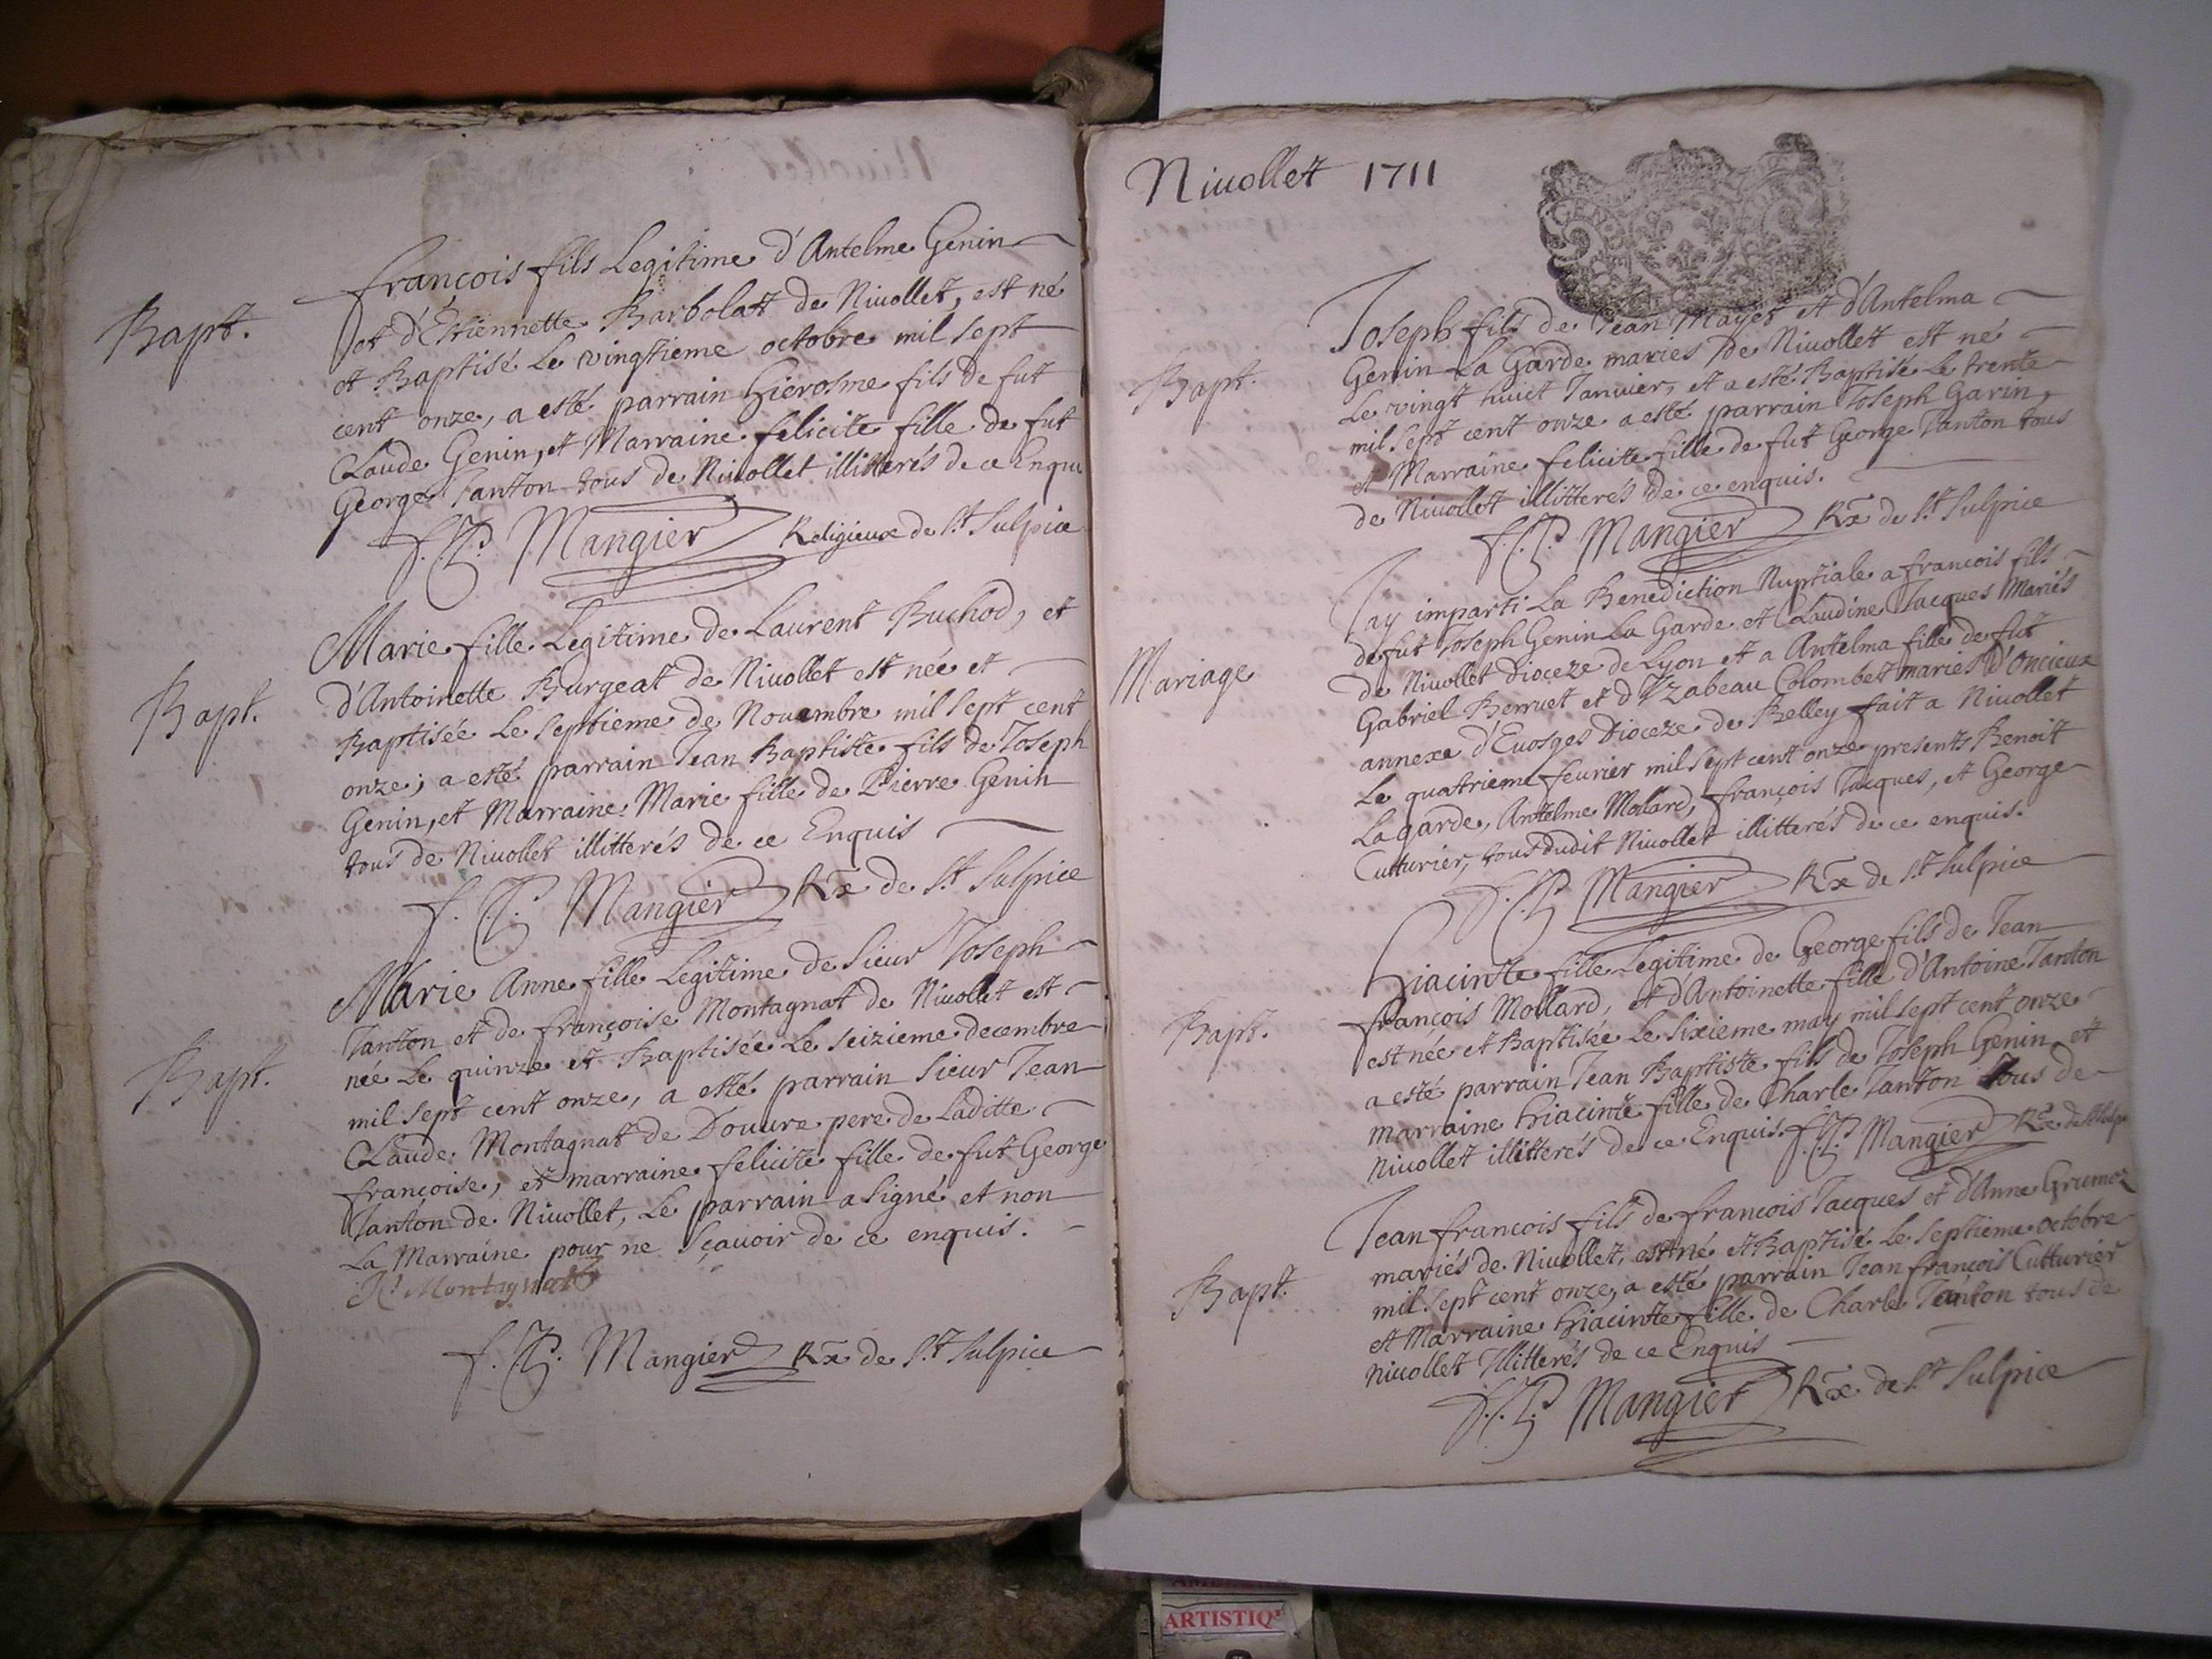 Bapt.
françois fils Legitime d'Antelme Genin
et d'Etiennette Barbolat de Niuollet, est né
et Baptisé Le vingtieme octobre mil sept
cent onze, a esté parrain hierosme fils de fut
Claude Genin, et Marraine felicite fille de fut
George Tanton tous de Niuollet illitterés de ce Enquis
f. Mangier Religieux de St Sulpice
Bapt.
Marie fille Legitime de Laurent Buchod, et
d'Antoinette Burgeat de Niuollet est née et
Baptisée Le septieme de Nouembre mil sept cent
onze; a esté parrain Jean Baptiste fils de Joseph
Genin, et Marraine Marie fille de Pierre Genin
tous de Niuollet illitterés de ce Enquis
f. Mangier Rx de St Sulpice
Bapt.
Marie Anne fille Legitime de Sieur Joseph
Tanton et de françoise Montagnat de Niuollet est
née Le quinze et Baptisée Le seizieme decembre
mil sept cent onze, a esté parrain Sieur Jean
Claude Montagnat de Douure pere de Laditte
françoise, et marraine felicite fille de fut George
Tanton de Niuollet, Le parrain a signé et non
La Marraine pour ne sçauoir de ce enquis.
Montagnat
f. Mangier Rx de St Sulpice
Niuollet 1711
Bapt.
Joseph fils de Jean Mayet et d'Antelma
Genin La Garde mariés de Niuollet est né
Le vingt huict Januier, et a esté Baptisé Le trente
mil sept cent onze a esté parrain Joseph Garin,
et Marraine felicite fille de fut George Tanton tous
de Niuollet illitterés de ce enquis.
f. Mangier Rx de St Sulpice
Mariage
Jay imparti La Benediction Nuptiale a francois fils
de fut Joseph Genin La Garde et Claudine Jacques Mariés
de Niuollet dioceze de Lyon et a Antelma fille de fut
Gabriel Berruet et d'Yzabeau Colombet mariés d'Oncieux
annexe d'Euosges Dioceze de Belley fait a Niuollet
Le quatrieme feurier mil sept cent onze presents Benoitt
Lagarde, Antelme Mollard, françois Jacques, et George
Cutturier, tous dudit Niuollet illitterés de ce enquis.
f. Mangier Rx de St Sulpice
Bapt.
hiacinte fille Legitime de George fils de Jean
françois Mollard, et d'Antoinette fille d'Antoine Tanton
est née et Baptisée Le sixieme may mil sept cent onze
a esté parrain Jean Baptiste fils de Joseph Genin, et
marraine hiacinte fille de Charle Tanton tous de
Niuollet illitterés de ce Enquis. f. Mangier Rx de St Sulpi
Bapt.
Jean francois fils de francois Jacques et d'Anne Grumet
mariés de Niuollet, est né et Baptisé Le septieme octobre
mil sept cent onze, a esté parrain Jean françois Cutturier
et Marraine hiacinte fille de Charle Tanton tous de
Niuollet Illitterés de ce Enquis
f. Mangier Rx de St Sulpice
ARTISTIQ